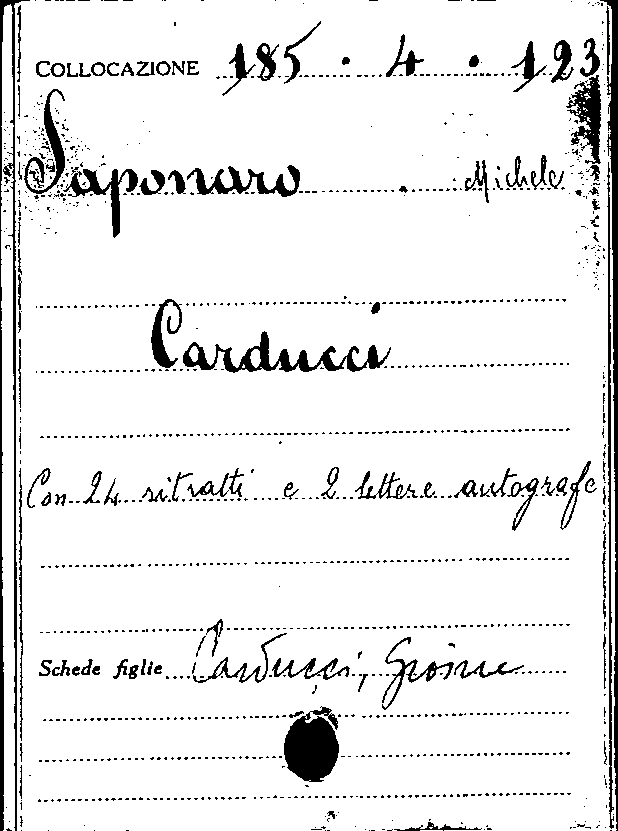 COLLOCAZIONE 185 . 4 . 123
Saponaro . Michele
Carducci
Con 24 ritratti e 2 lettere autografe
Schede figlie Carducci, Giosue